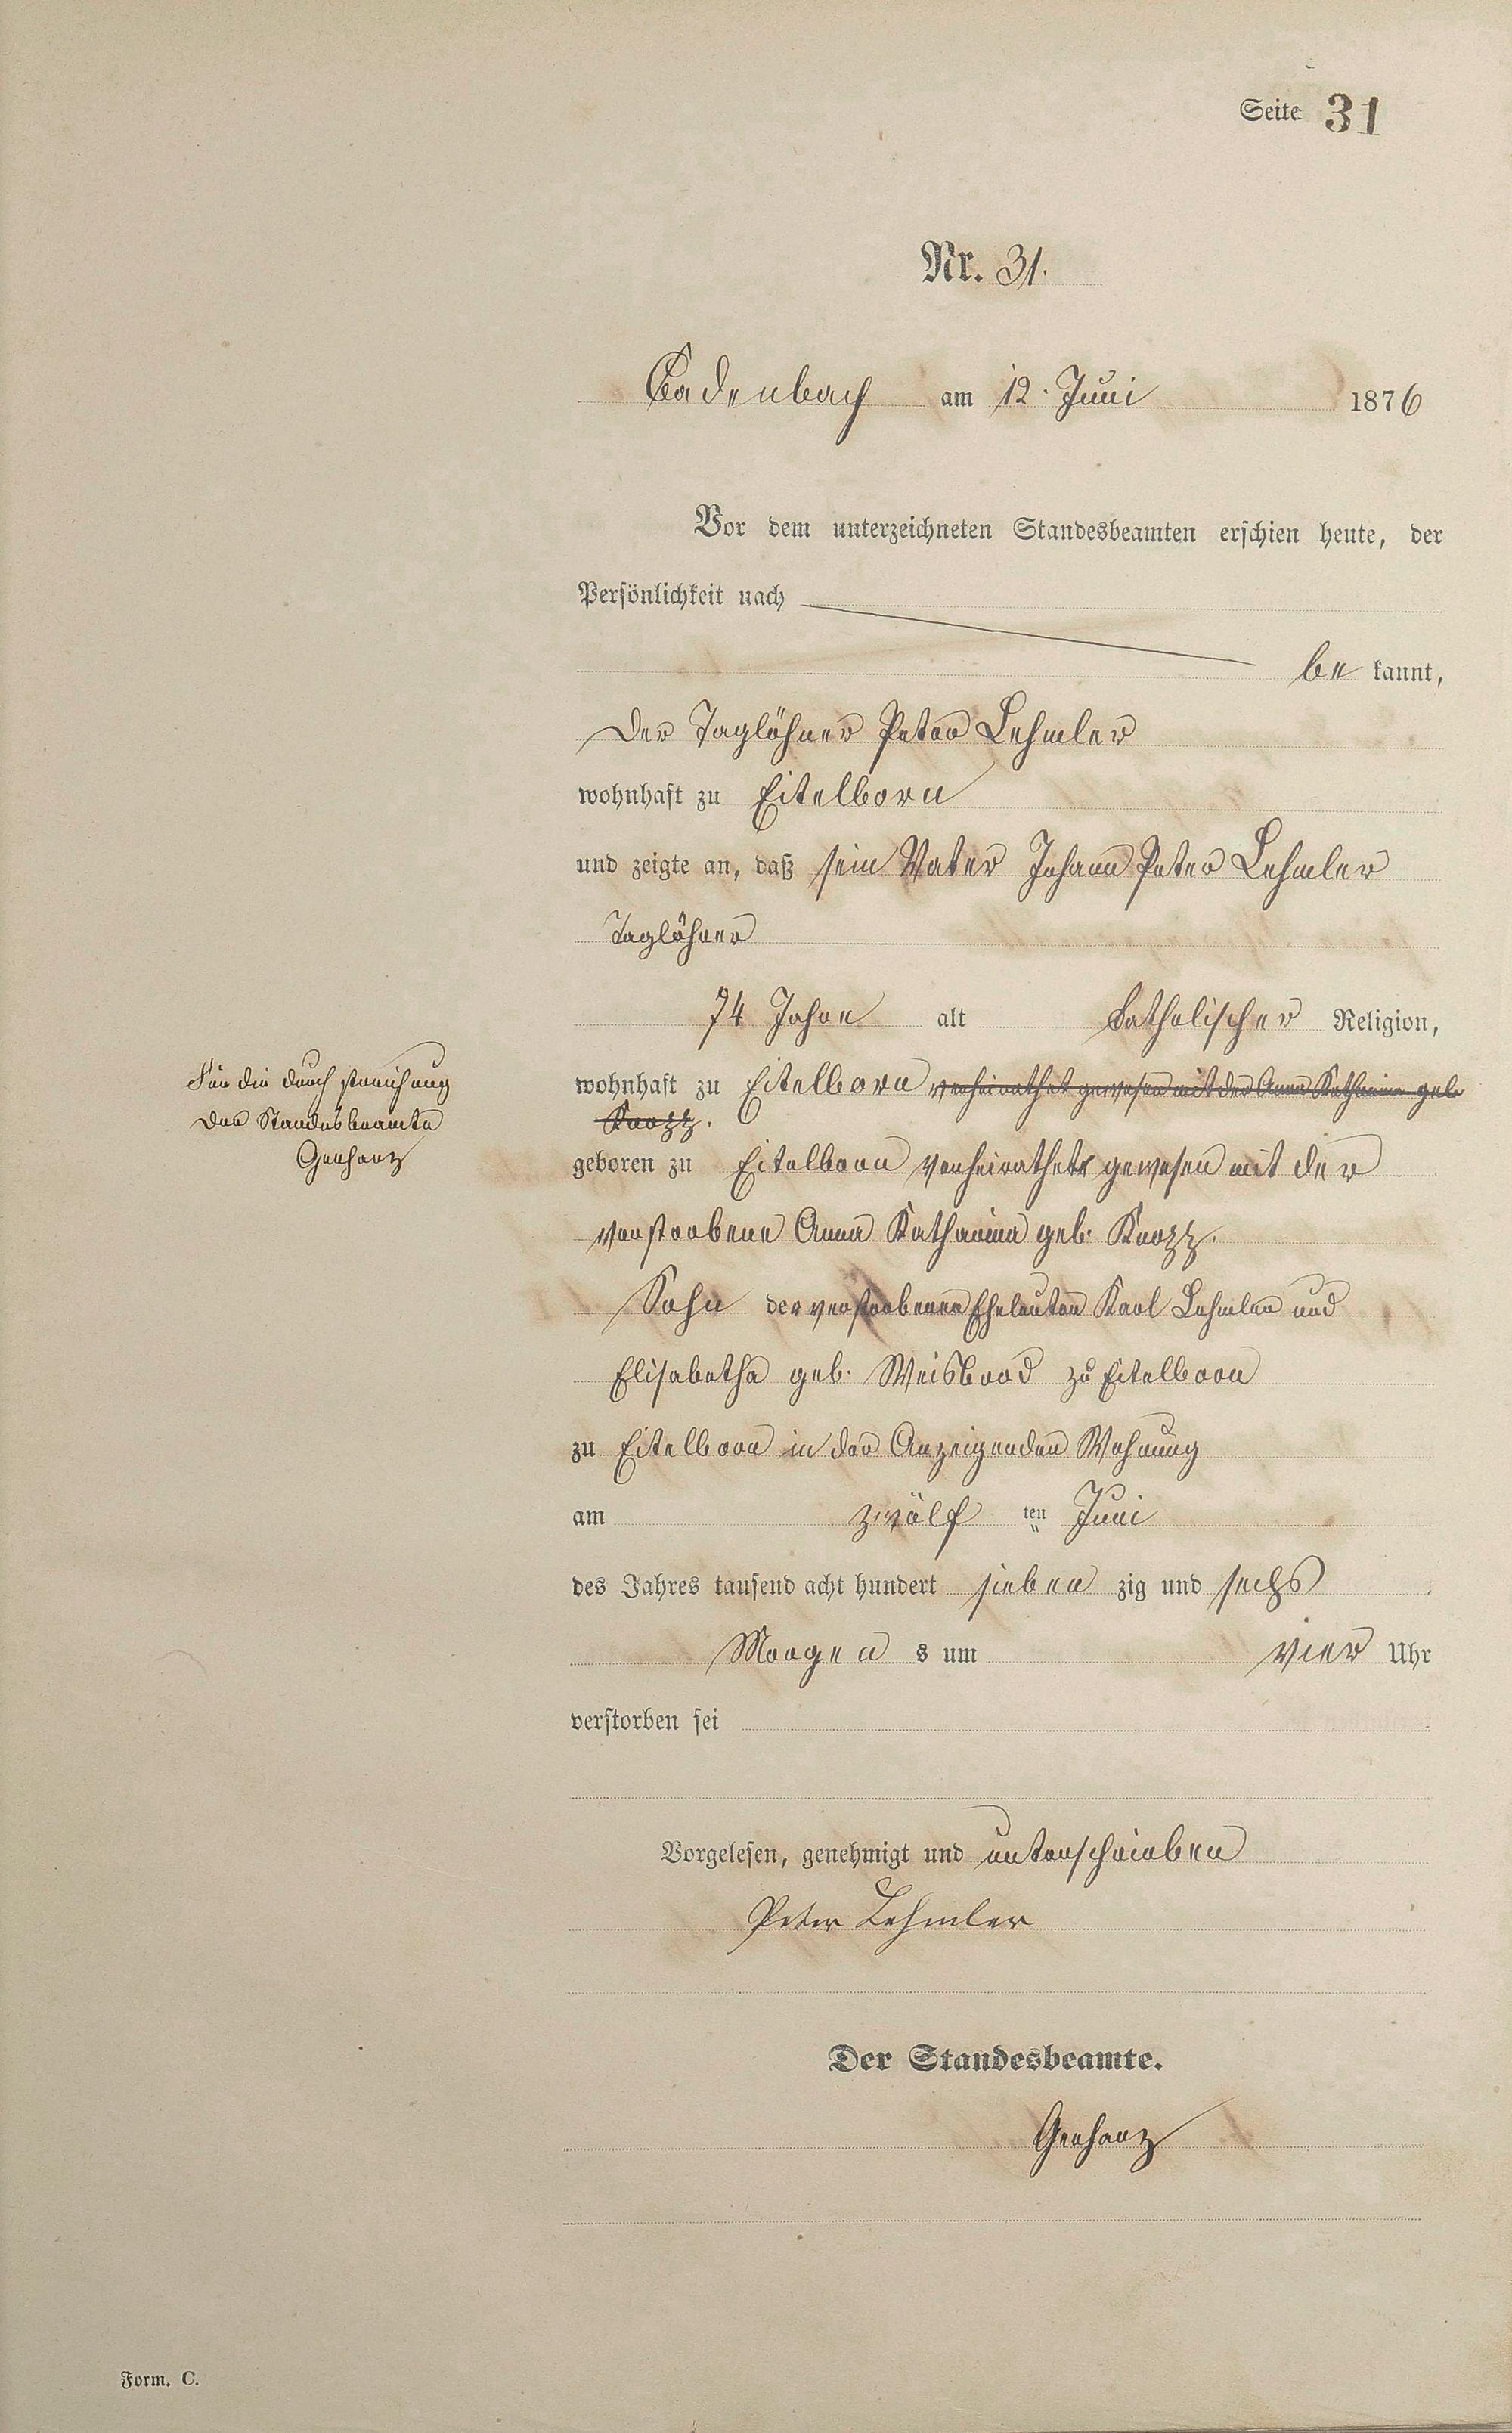 Seite 31
Nr. 31.
Cadenbach am 12. Juni 1876
Vor dem unterzeichneten Standesbeamten erschien heute, der
Persönlichkeit nach
be kannt,
Der Taglöhner Peter Lehmler
wohnhaft zu Eitelborn
und zeigte an, daß sein Vater Johann Peter Lehmler
Taglöhner
74 Jahre alt katholischer Religion,
wohnhaft zu Eitelborn verheirathet gewesen mit der Anna Katharina geb
Knozz.
geboren zu Eitelborn verheirathet gewesen mit der
verstorbene Anna Katharina geb. Knozz.
Sohn der verstorbenen Eheleuten Karl Lehmler und
Elisabetha geb. Weisbrod zu Eitelborn
zu Eitelborn in der Anzeigenden Wohnung
am zwölf ten Juni
des Jahres tausend acht hundert sieben zig und sechs
Morgen s um vier Uhr
verstorben sei
Vorgelesen, genehmigt und unterschrieben
Peter Lehmler
Der Standesbeamte.
Gerharz
Für die durch streichung
Der Standesbeamte
Gerharz
Form. C.